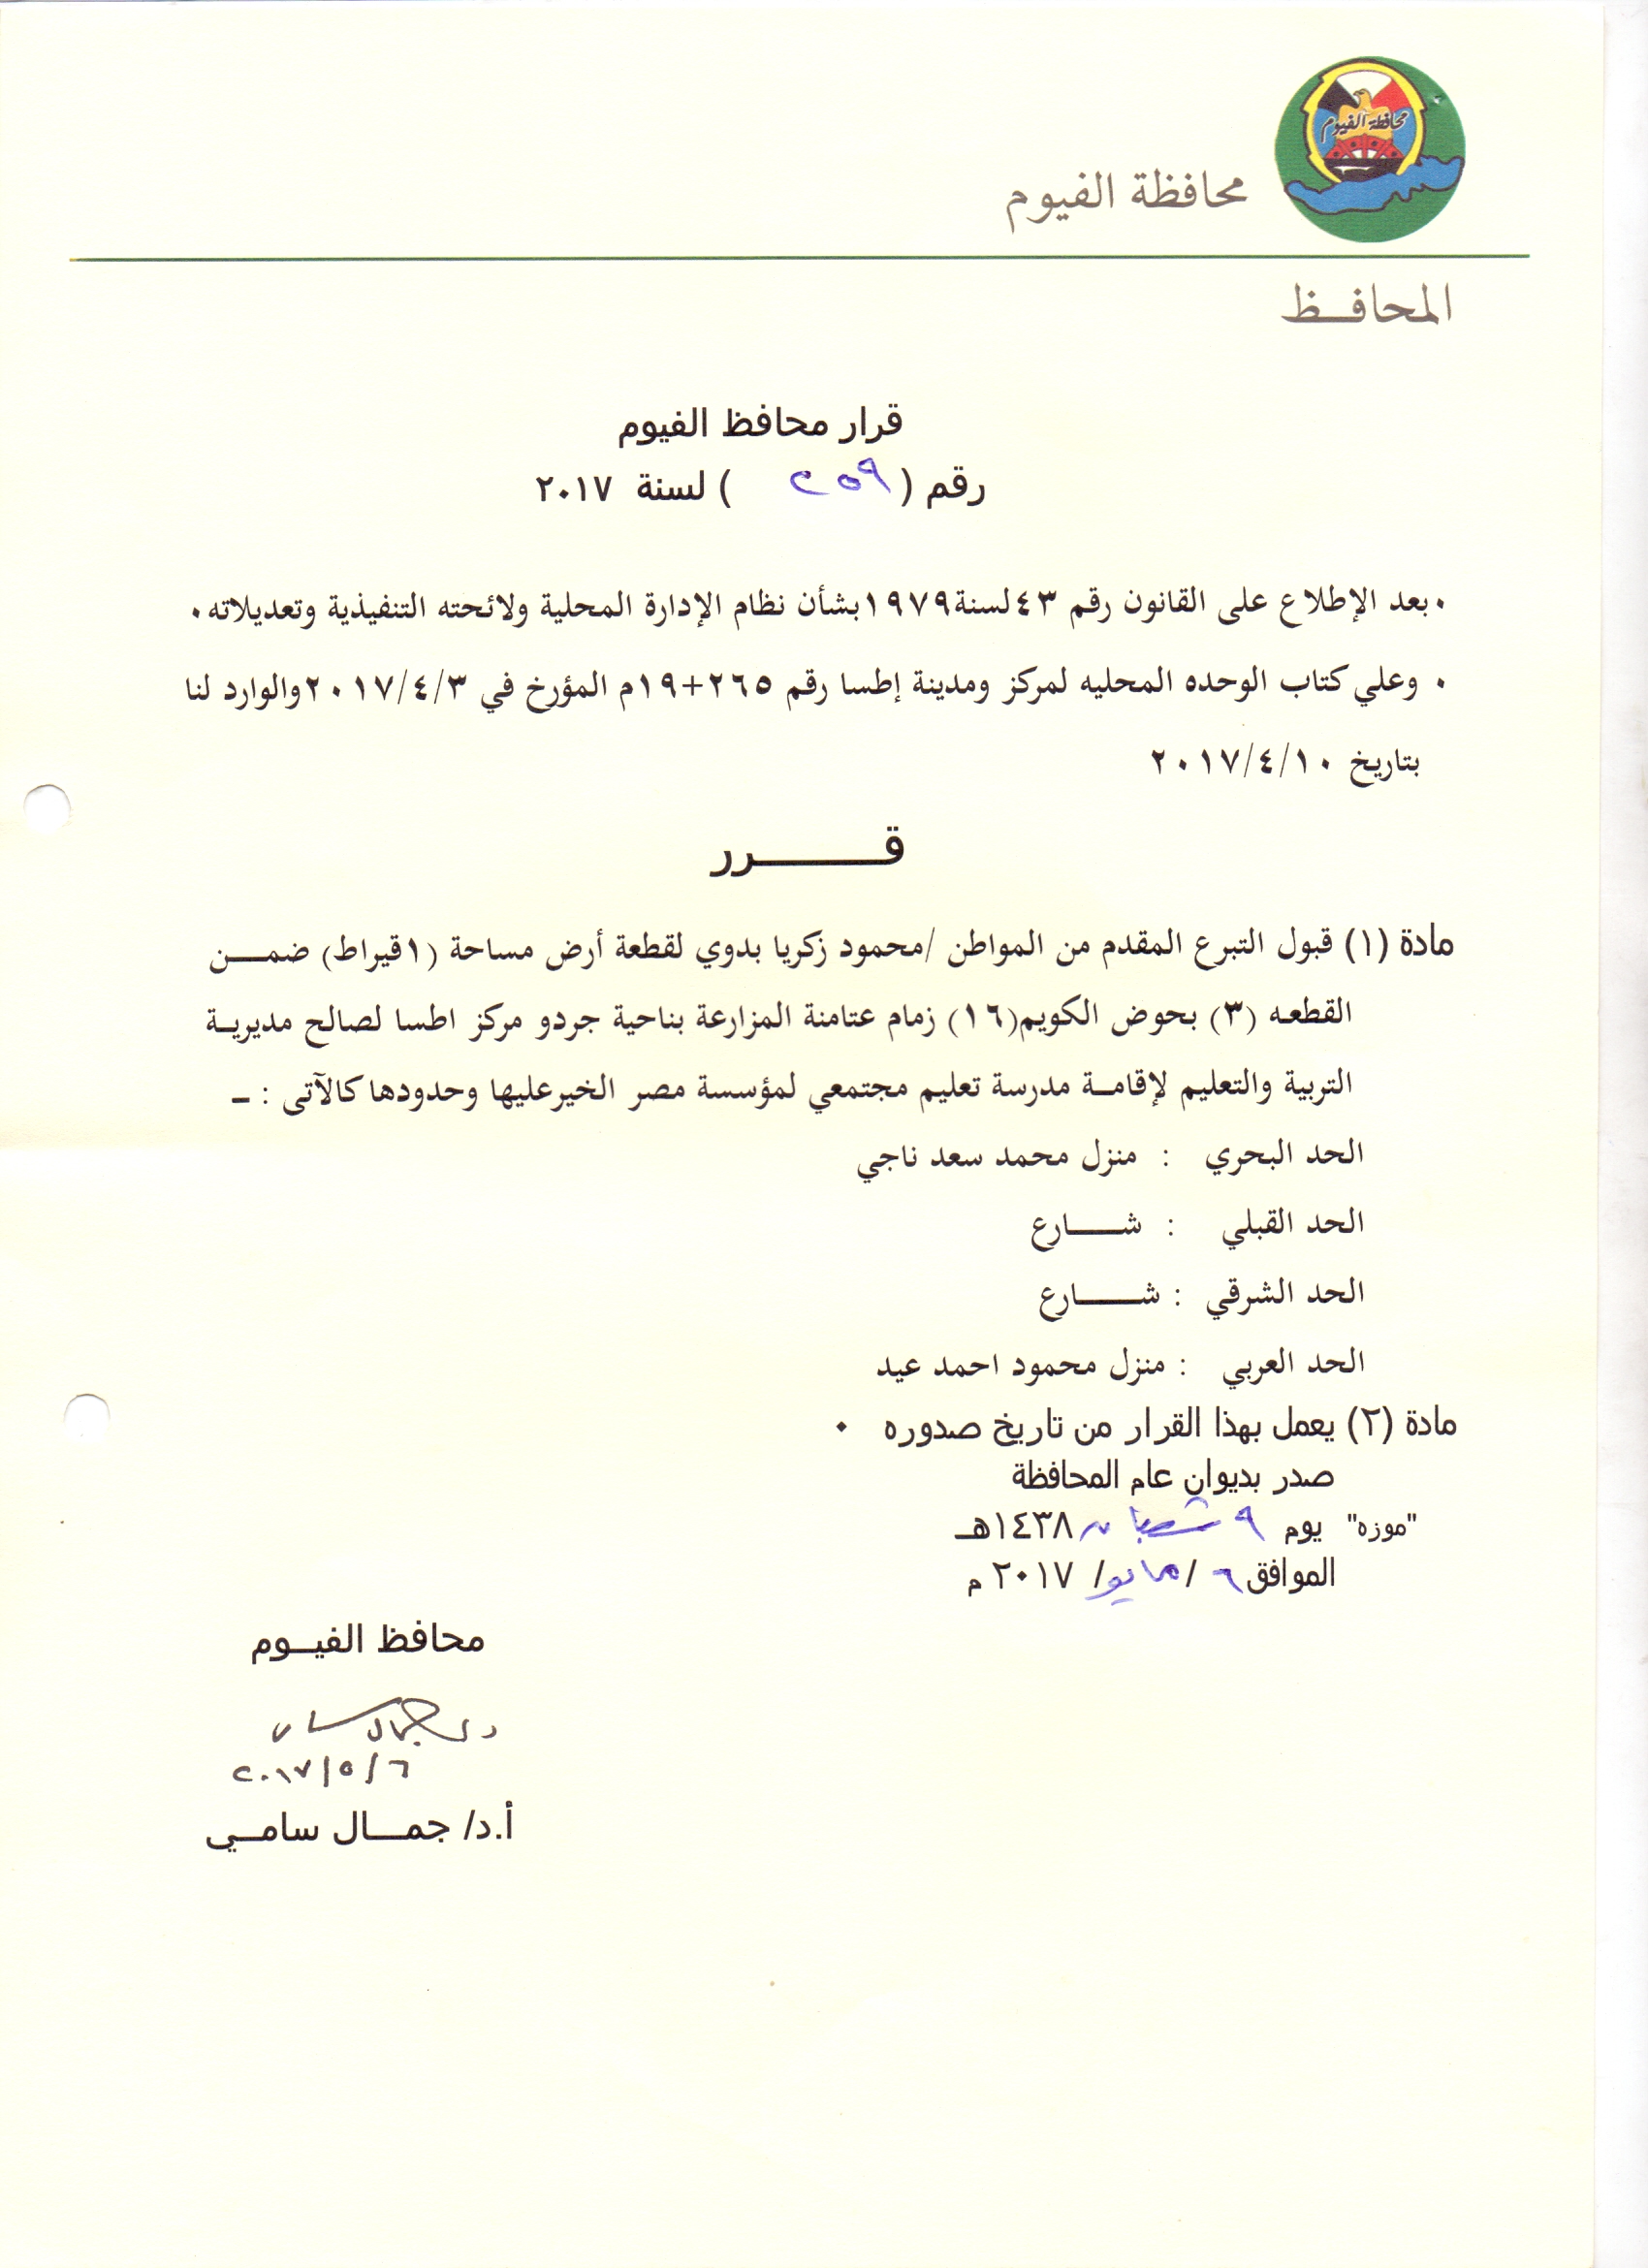 محافظة الفيوم
محافظة الفيوم
المحافـــظ
قرار محافظ الفيوم
رقم ( ٢٥٩ ) لسنة ٢٠١٧
٠ بعد الإطلاع على القانون رقم ٤٣ لسنة ١٩٧٩ بشأن نظام الإدارة المحلية ولائحته التنفيذية وتعديلاته ٠
٠ وعلي كتاب الوحده المحليه لمركز ومدينة إطسا رقم ٢٦٥+١٩م المؤرخ في ٢٠١٧/٤/٣ والوارد لنا
بتاريخ ٢٠١٧/٤/١٠
قـــــــــرر
مادة (١) قبول التبرع المقدم من المواطن /محمود زكريا بدوي لقطعة أرض مساحة (١قيراط) ضمـــن
القطعه (٣) بحوض الكويم(١٦) زمام عتامنة المزارعة بناحية جردو مركز اطسا لصالح مديريـة
التربية والتعليم لإقامـة مدرسة تعليم مجتمعي لمؤسسة مصر الخيرعليها وحدودها كالآتى : ـ
الحد البحري : منزل محمد سعد ناجي
الحد القبلي : شـــــارع
الحد الشرقي : شـــــارع
الحد العربي : منزل محمود احمد عيد
مادة (٢) يعمل بهذا القرار من تاريخ صدوره ٠
صدر بديوان عام المحافظة
"موزه" يوم ٩ شعبان ١٤٣٨هـ
الموافق ٦ /مايو/ ٢٠١٧ م
محافظ الفيـوم
د. جمال سامي
٢٠١٧/٥/٦
أ.د/ جمـــال سامــي